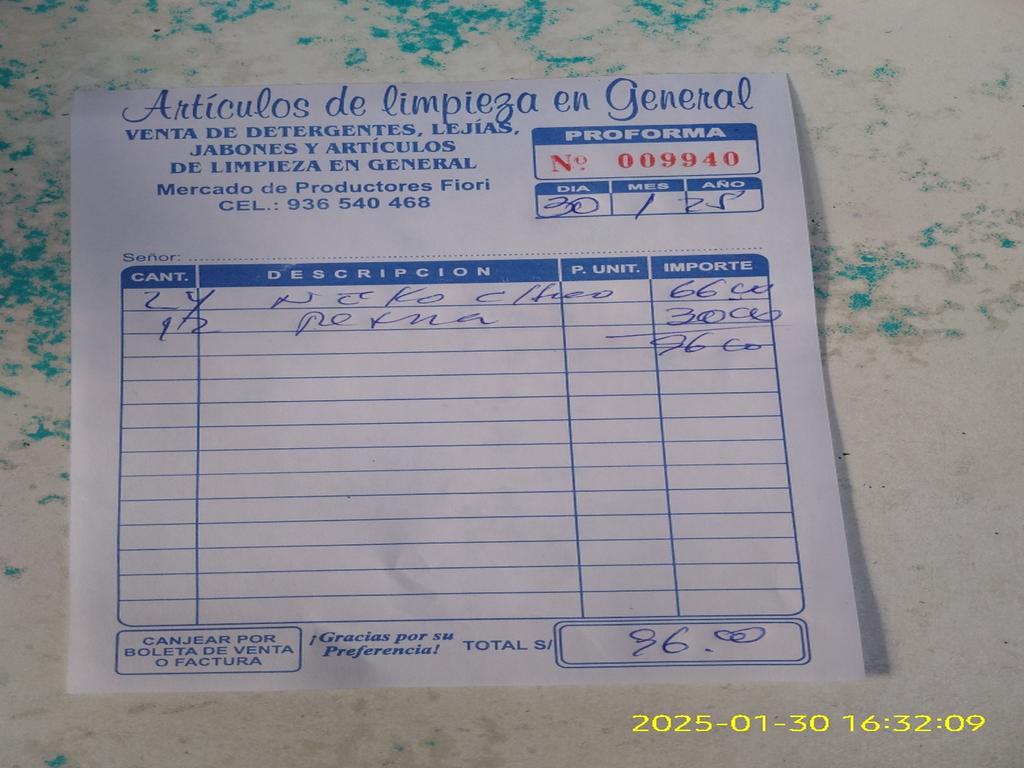 Artículos de limpieza en General
VENTA DE DETERGENTES, LEJÍAS,
JABONES Y ARTÍCULOS
DE LIMPIEZA EN GENERAL
Mercado de Productores Fiori
CEL.: 936 540 468
PROFORMA
Nº 009940
DIA MES AÑO
30 1 25
Señor:
CANT. DESCRIPCION P. UNIT. IMPORTE
24 66 00
1/2 30 00
96 00
CANJEAR POR
BOLETA DE VENTA
O FACTURA
¡Gracias por su
Preferencia!
TOTAL S/ 96.00
2025-01-30 16:32:09